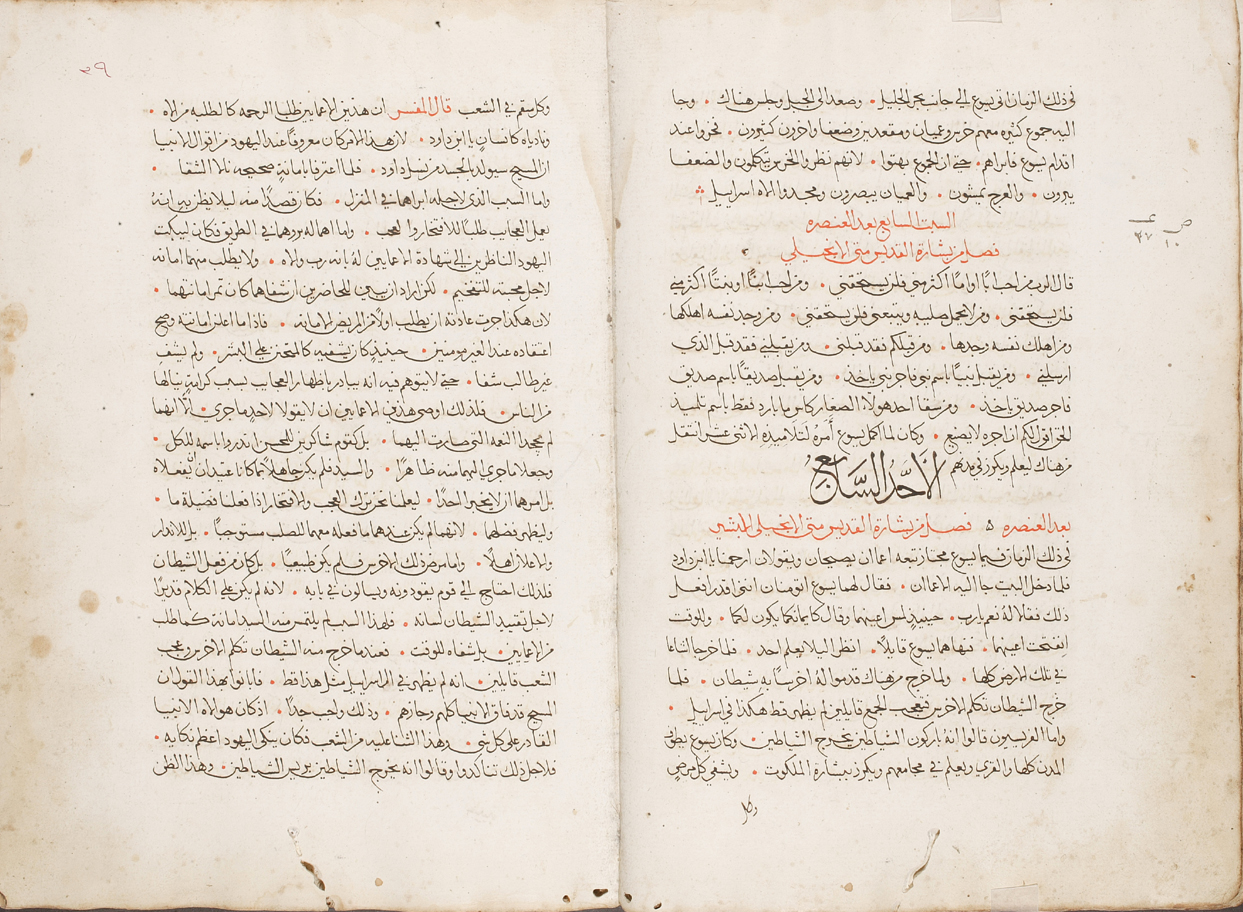 في ذلك الزمان اتي يسوع الي جانب بحر الجليل • وصعد الى الجبل وجلس هناك • وجا
اليه جموع كثيره معهم خرس وعميان ومقعدين وضعفا واخرون كثيرون • نخروا عند
اقدام يسوع فابراهم • حتي ان الجموع بهتوا • لانهم نظروا الخرس يتكلمون والضعفا
يبرون • والعرج يمشون • والعميان يبصرون ومجدوا الاه اسراييل
السبت السابع بعد العنصره
فصل من بشارة القديس متى الانجيلي
قال الرب من احب ابًا او امًا اكثر مني فلن يستحقني • ومن احب ابنًا او بنتًا اكثر مني
فلن يستحقني • ومن لا يحمل صليبه ويتبعني فلن يستحقني • ومن وجد نفسه اهلكها
ومن اهلك نفسه وجدها • ومن قبلكم فقد قبلني • ومن يقبلني فقد قبل الذي
ارسلني • ومن يقبل نبيًا باسم نبي فاجر نبي ياخذ • ومن يقبل صديقًا باسم صديق
فاجر صديق ياخذ • ومن سقا احد هولاء الصغار كاس ما بارد فقط باسم تلميذ
الحق اقول لكم ان اجره لا يضيع • وكان لما اكمل يسوع أمرَهُ لتلاميذه الاثنى عشر انتقل
من هناك ليعلم ويكرز في مدنهم الأَحَدُ السَّابِعُ
بعد العنصره ۵ فصل من بشارة القديس متى الانجيلي البشير
في ذلك الزمان فيما يسوع مجتاز تبعه اعمان يصيحان ويقولان ارحمنا يا ابن داود
فلما دخل البيت جا اليه الاعمان • فقال لهما يسوع اتومنان انني اقدر افعل
ذلك فقالا لهُ نعم يا رب • حينيذٍ لمس اعينهما وقال كايمانكما يكون لكما • وللوقت
انفتحت اعينهما • فنهاهما يسوع قايلًا • انظرا ليلا يعلم احد • فلما خرجا اشاعا
في تلك الارض كلها • ولما خرج من هناك قدموا لهُ اخرسًا به شيطان • فلما
خرج الشيطان تكلم الاخرس فتعجب الجمع قايلين لم يظهر قط هكذا في اسراييل •
واما الفريسيون قالوا انهُ باركون الشياطين يخرج الشياطين • وكان يسوع يطوف
المدن كلها والقرى ويعلم في مجامعهم ويكرز ببشارة الملكوت • ويشفي كل مرضٍ
وكل
وكل سقم في الشعب قال المفسر ان هذين الاعمايين طلبا الرحمه كالطلبه من الاه •
وناداه كانسانٍ يا ابن داود • لان هذا الامر كان معروفًا عند اليهود من اقوال الانبيا
ان المسيح سيولد بالجسد من نسل داود • فلما اعترفا بامانةٍ صحيحه نالا الشفا •
واما السبب الذي لاجله ابراهما في المنزل • فكان قصدًا منه ليلا يظن به انهُ
يعمل العجايب طلبًا للافتخار والعجب • واما اهماله بروهما في الطريق فكان ليبكت
اليهود الناظرين الي شهادة الاعمايين لهُ بانه رب والاه • ولا يطلب منهما امانه
لاجل محبته للتفخيم • لكن اراد ان يبين للحاضرين ان شفاهما كان ثمر امانتهما •
لان هكذا جرت عادته ان يطلب اولًا من المريض الامانه • فاذا ما اعلن امانته وصح
اعتقاده عند الغير مومنين • حينيذٍ كان يشفيه كالمتحنن علي البشر • ولم يشف
غير طالب شفا • حتي لا يتوهم فيه انه يبادر باظهار العجايب لسبب كرامةٍ ينالها
من الناس • فلذلك اوصى هذين الاعمايين ان لا يقولا لاحدٍ ما جرى • الا انهما
لم يجحدا النعمه التي صارت اليهما • بل كقوم شاكرين للمحسن انذروا باسمه للكل •
وجعلا ما جرى اليهما منه ظاهرًا • والسيد فلم يكن جاهلًا بما كانا عتيدان يفعلاه
بل امرهما ان لا يخبرا احدًا • ليعلمنا نحن ترك العجب والافتخار اذا فعلنا فضيلة ما •
وليظهر فضلهما • لانهما لم يكن عندهما ما فعله معهما للصلب مستوجبًا • بل للانذار
والاعلان اهلًا • واما مرض ذلك الاخرس فلم يكن طبيعيًا • بل كان من فعل الشيطان
فلذلك احتاج الي قوم يقودونه ويسالون في بابه • لانه لم يكن علي الكلام قديرًا
لاجل تقييد الشيطان لسانه • فلهذا السبب لم يلتمس منه السيد امانة كما طلب
من الاعمايين • بل شفاه للوقت • فعندما خرج منه الشيطان تكلم الاخرس وعجب
الشعب قايلين • انه لم يظهر في ال اسراييل مثل هذا قط • فابانوا بهذا القول ان
المسيح قد فاق الانبيا كلهم وجازهم • وذلك واجب جدًا • اذ كان هو الاه الانبيا
القادر على كل شي • وهذا الثنا عليه من الشعب فكان ينكي اليهود اعظم نكايه •
فلاجل ذلك تناكدوا وقالوا انه يخرج الشياطين بريس الشياطين • وهذا الظن